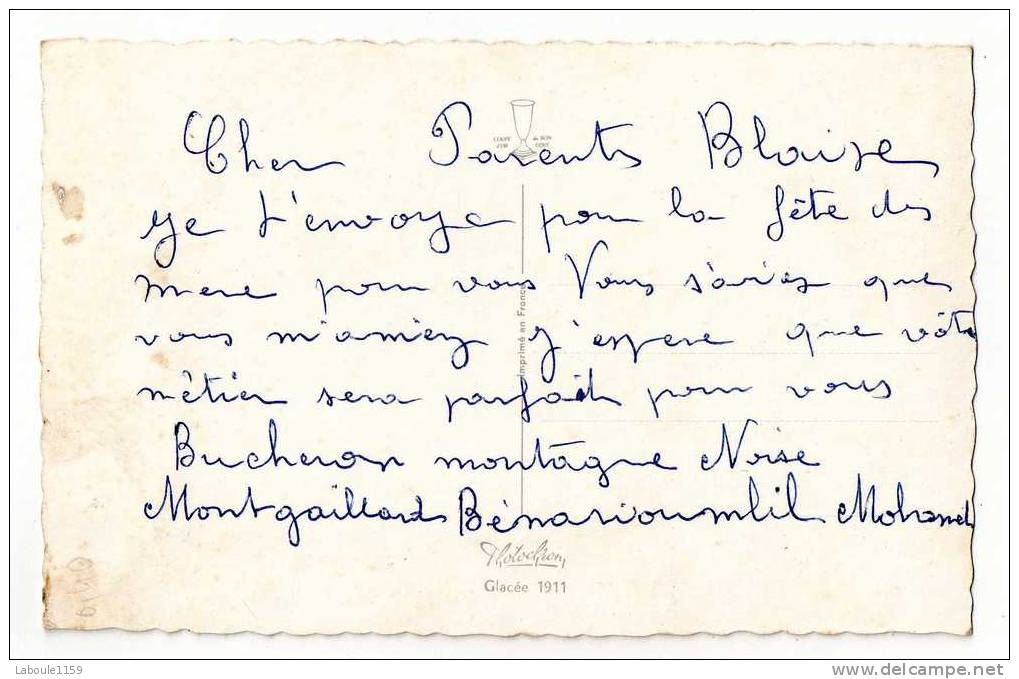 Cher Parents Blaise
COUPE D'OR du BON GOUT
Je t'envoye pour la fête des
mere pour vous Vous s'aviez que
vous m'amiez J'espere que vôtre
métier sera parfait pour vous
Bucheron montagne Noise
Montgaillard Bénarioumlil Mohamed
Imprimé en France
Photochrom
Glacée 1911
Laboule1159
www.delcampe.net